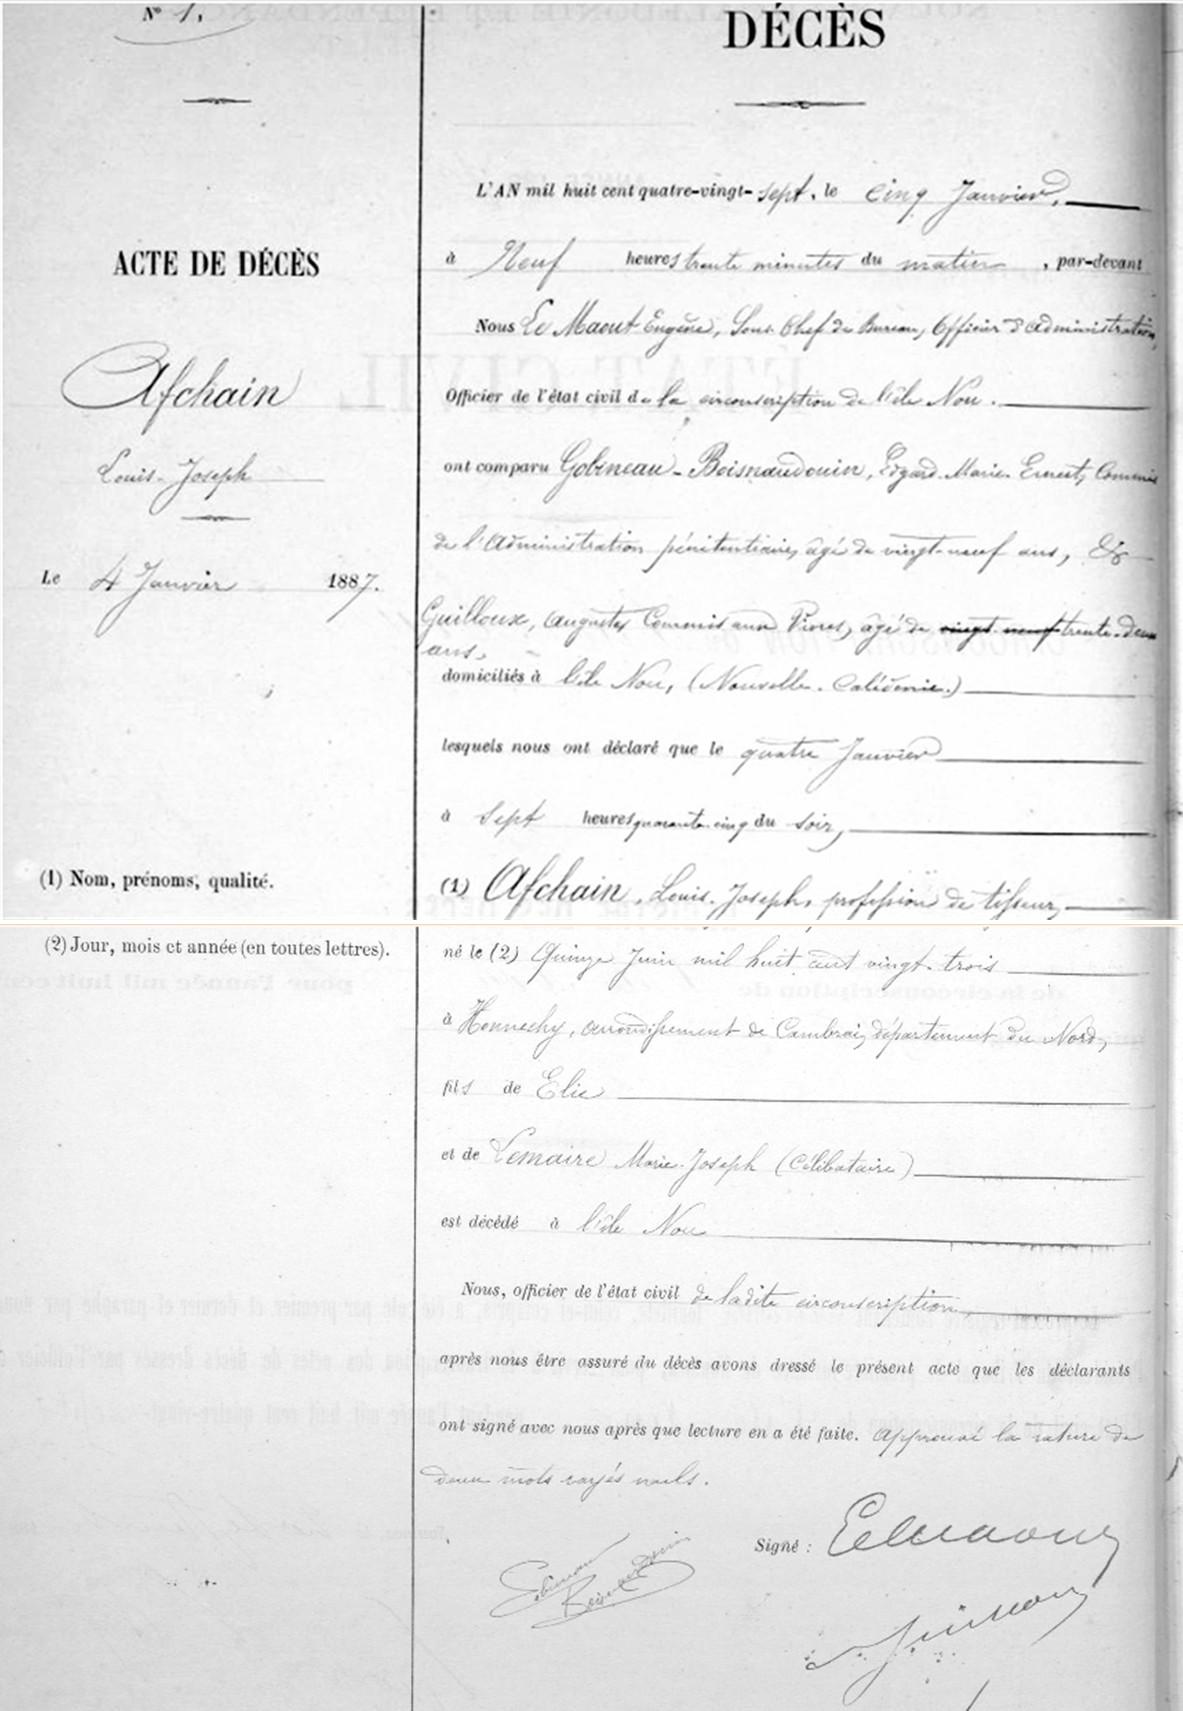 N° 1,
ACTE DE DÉCÈS
Afchain
Louis-Joseph
Le 4 Janvier 1887.
(1) Nom, prénoms, qualité.
(2) Jour, mois et année (en toutes lettres).
DÉCÈS
L'AN mil huit cent quatre-vingt-sept, le cinq Janvier,
à Neuf heures trente minutes du matin, par-devant
Nous Le Maout Eugène, Sous-Chef de Bureau, Officier d'Administration,
Officier de l'état civil de la circonscription de l'île Nou.
ont comparu Gobineau-Boisnaudouin, Edgard-Marie-Ernest, Commis
de l'Administration pénitentiaire, âgé de vingt-neuf ans, &
Guilloux, Auguste, Commis aux Vivres, âgé de vingt-neuf trente-deux
ans,
domiciliés à l'île Nou, (Nouvelle-Calédonie.)
lesquels nous ont déclaré que le quatre Janvier
à Sept heures quarante-cinq du soir,
(1) Afchain, Louis-Joseph, profession de tisseur,
né le (2) Quinze Juin mil huit cent vingt-trois
à Honnechy, arrondissement de Cambrai, département du Nord,
fils de Elie
et de Lemaire Marie-Joseph (Célibataire)
est décédé à l'île Nou
Nous, officier de l'état civil de ladite circonscription
après nous être assuré du décès avons dressé le présent acte que les déclarants
ont signé avec nous après que lecture en a été faite. Approuvé la rature de
deux mots rayés nuls.
Signé : ELeMaout
Gobineau
Boisnaudouin
Guilloux